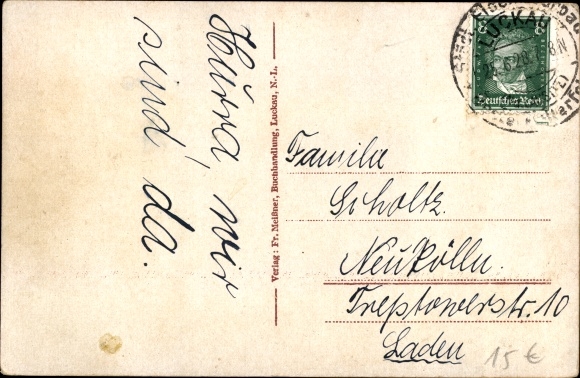 Hurra, wir
sind da.
Verlag: Fr. Meißner, Buchhandlung, Luckau, N.-L.
LUCKAU
8-N
Deutsches Reich
Familie
Scholtz.
Neukölln.
Treptowerstr. 10
Laden
15 €